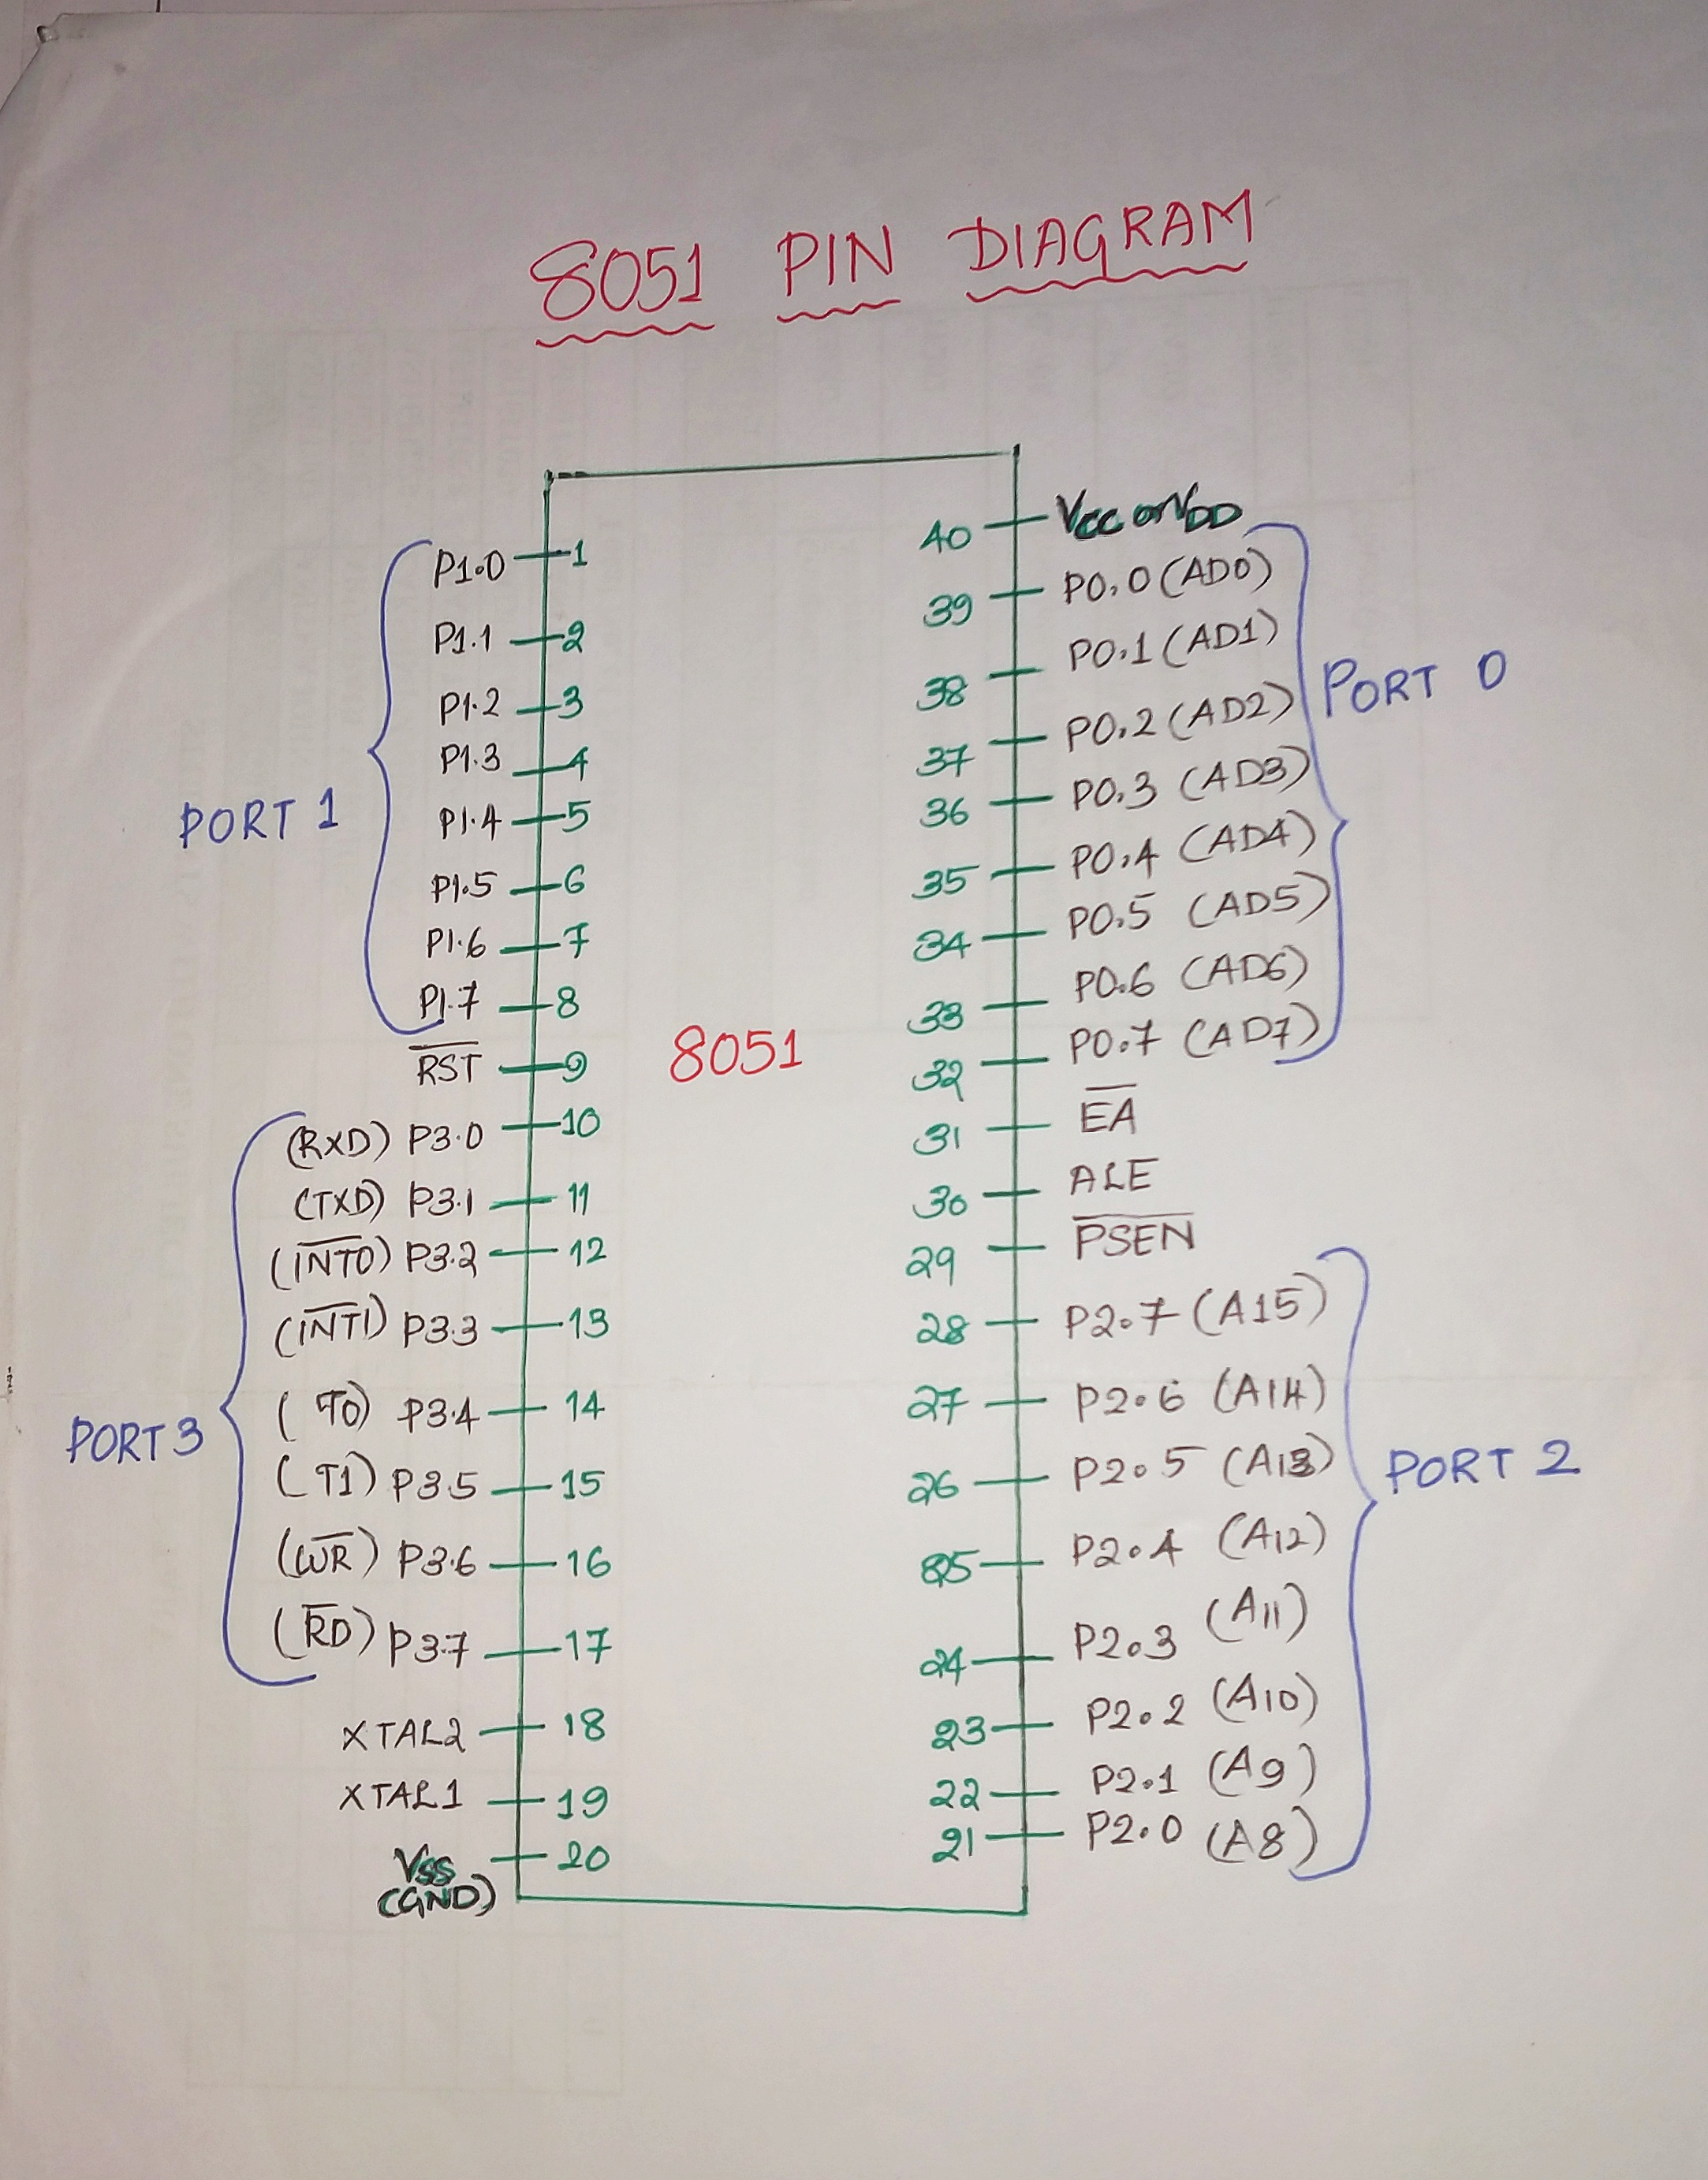 8051 PIN DIAGRAM
PORT 1
P1.0 1
P1.1 2
P1.2 3
P1.3 4
P1.4 5
P1.5 6
P1.6 7
P1.7 8
R̅S̅T̅ 9
PORT 3
(RXD) P3.0 10
(TXD) P3.1 11
(I̅N̅T̅0̅) P3.2 12
(I̅N̅T̅1̅) P3.3 13
(T0) P3.4 14
(T1) P3.5 15
(W̅R̅) P3.6 16
(R̅D̅) P3.7 17
XTAL2 18
XTAL1 19
VSS 20
(GND)
8051
40 VCC or VDD
39 P0.0 (AD0)
38 P0.1 (AD1)
37 P0.2 (AD2)
36 P0.3 (AD3)
35 P0.4 (AD4)
34 P0.5 (AD5)
33 P0.6 (AD6)
32 P0.7 (AD7)
PORT 0
31 E̅A̅
30 ALE
29 P̅S̅E̅N̅
28 P2.7 (A15)
27 P2.6 (A14)
26 P2.5 (A13)
25 P2.4 (A12)
24 P2.3 (A11)
23 P2.2 (A10)
22 P2.1 (A9)
21 P2.0 (A8)
PORT 2